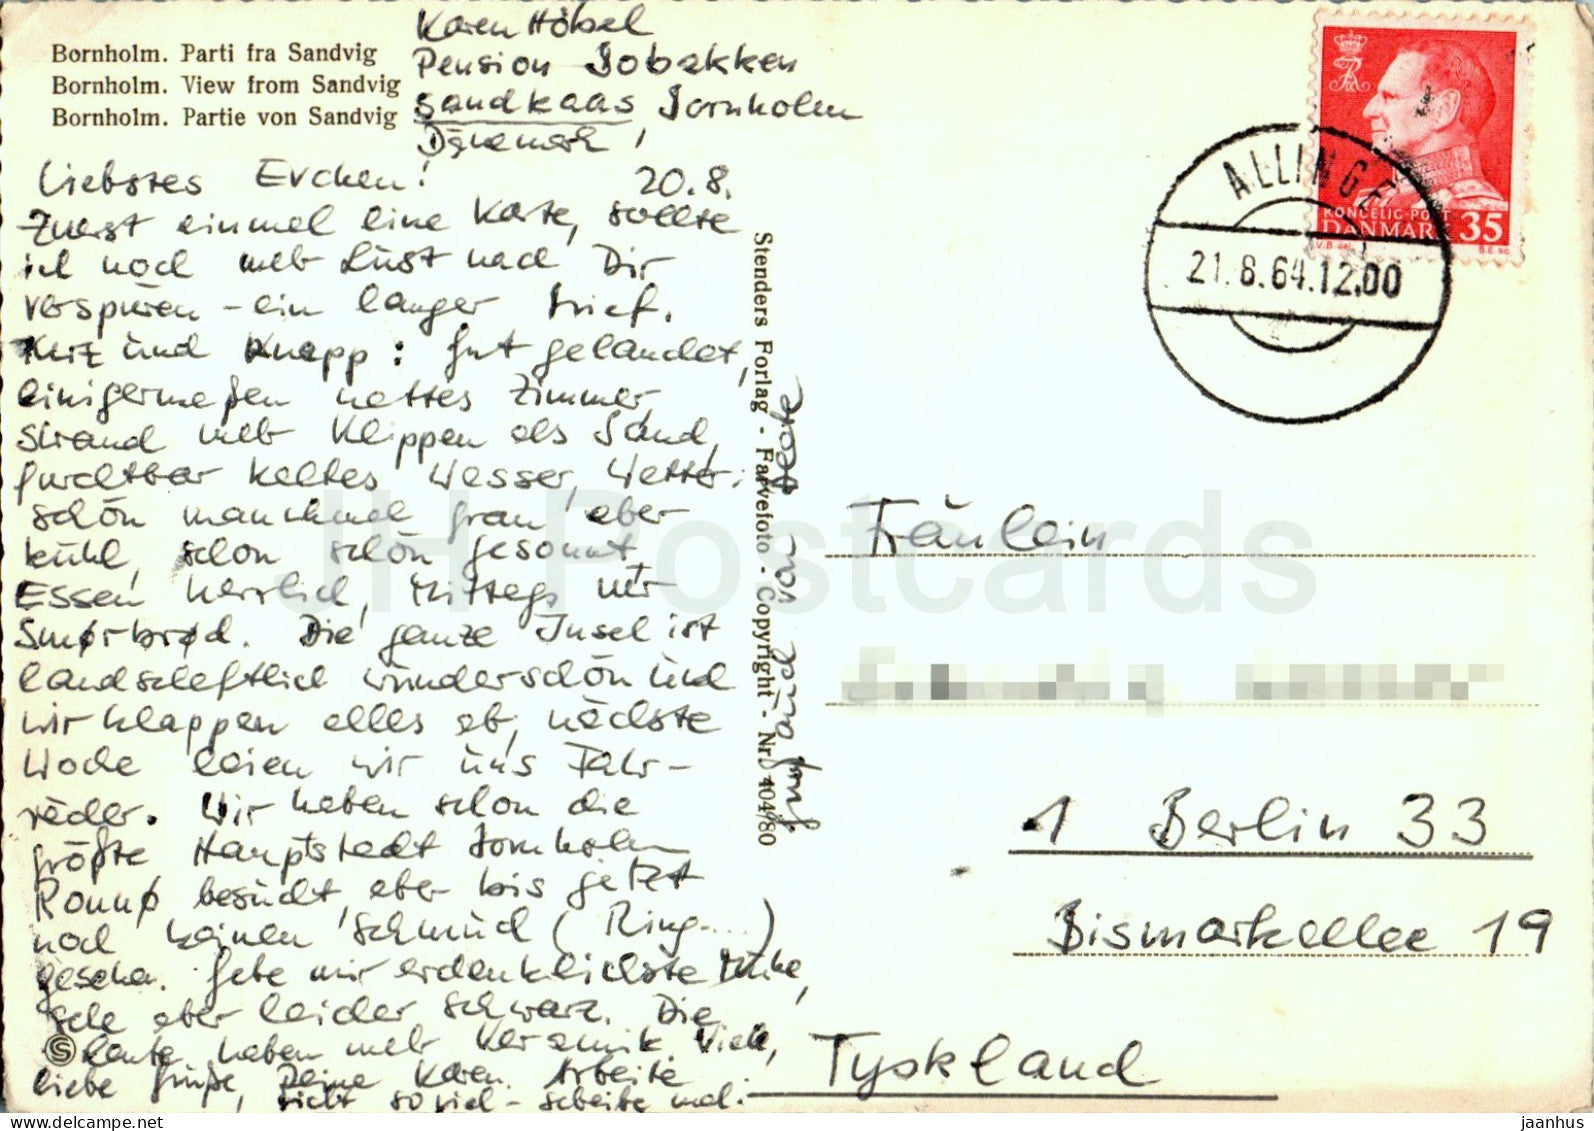 Bornholm. Parti fra Sandvig
Bornholm. View from Sandvig
Bornholm. Partie von Sandvig
Karen Höbel
Pension Sobakken
Sandkaas Bornholm
Dänemark
Liebstes Evchen! 20.8.
Zuerst einmal eine Karte, sollte
ich noch mehr Lust nach Dir
verspüren – ein langer Brief.
Kurz und Knapp: Gut gelandet,
einigermaßen nettes Zimmer,
Strand mehr Klippen als Sand,
furchtbar kaltes Wasser, Wetter:
schön manchmal grau aber
kühl, schon schön gesonnt,
Essen herrlich, Mittags nur
Smørbrød. Die ganze Insel ist
landschaftlich wunderschön und
wir klappen alles ab, nächste
Woche leien wir uns Fahr-
räder. Wir haben schon die
größte Hauptstadt Bornholm
Rønnø besucht, aber bis jetzt
noch keinen Schmuck (Ring....)
gesehen. Gebe mir erdenklichste Mühe,
sehe aber leider schwarz. Die
Leute haben mehr Keramik. Viele,
liebe Grüße, Deine Karen. Arbeite
nicht so viel – schreibe mal.
Gruß von
Stenders Forlag - Farvefoto - Copyright - Nr. 404/80
KONGELIG POST
DANMARK 35
V.B. del.
B.E. sc
ALLINGE
21.8.64.12.00
Fräulein
1 Berlin 33
Bismarkallee 19
Tyskland
JH Postcards
www.delcampe.net
jaanhus